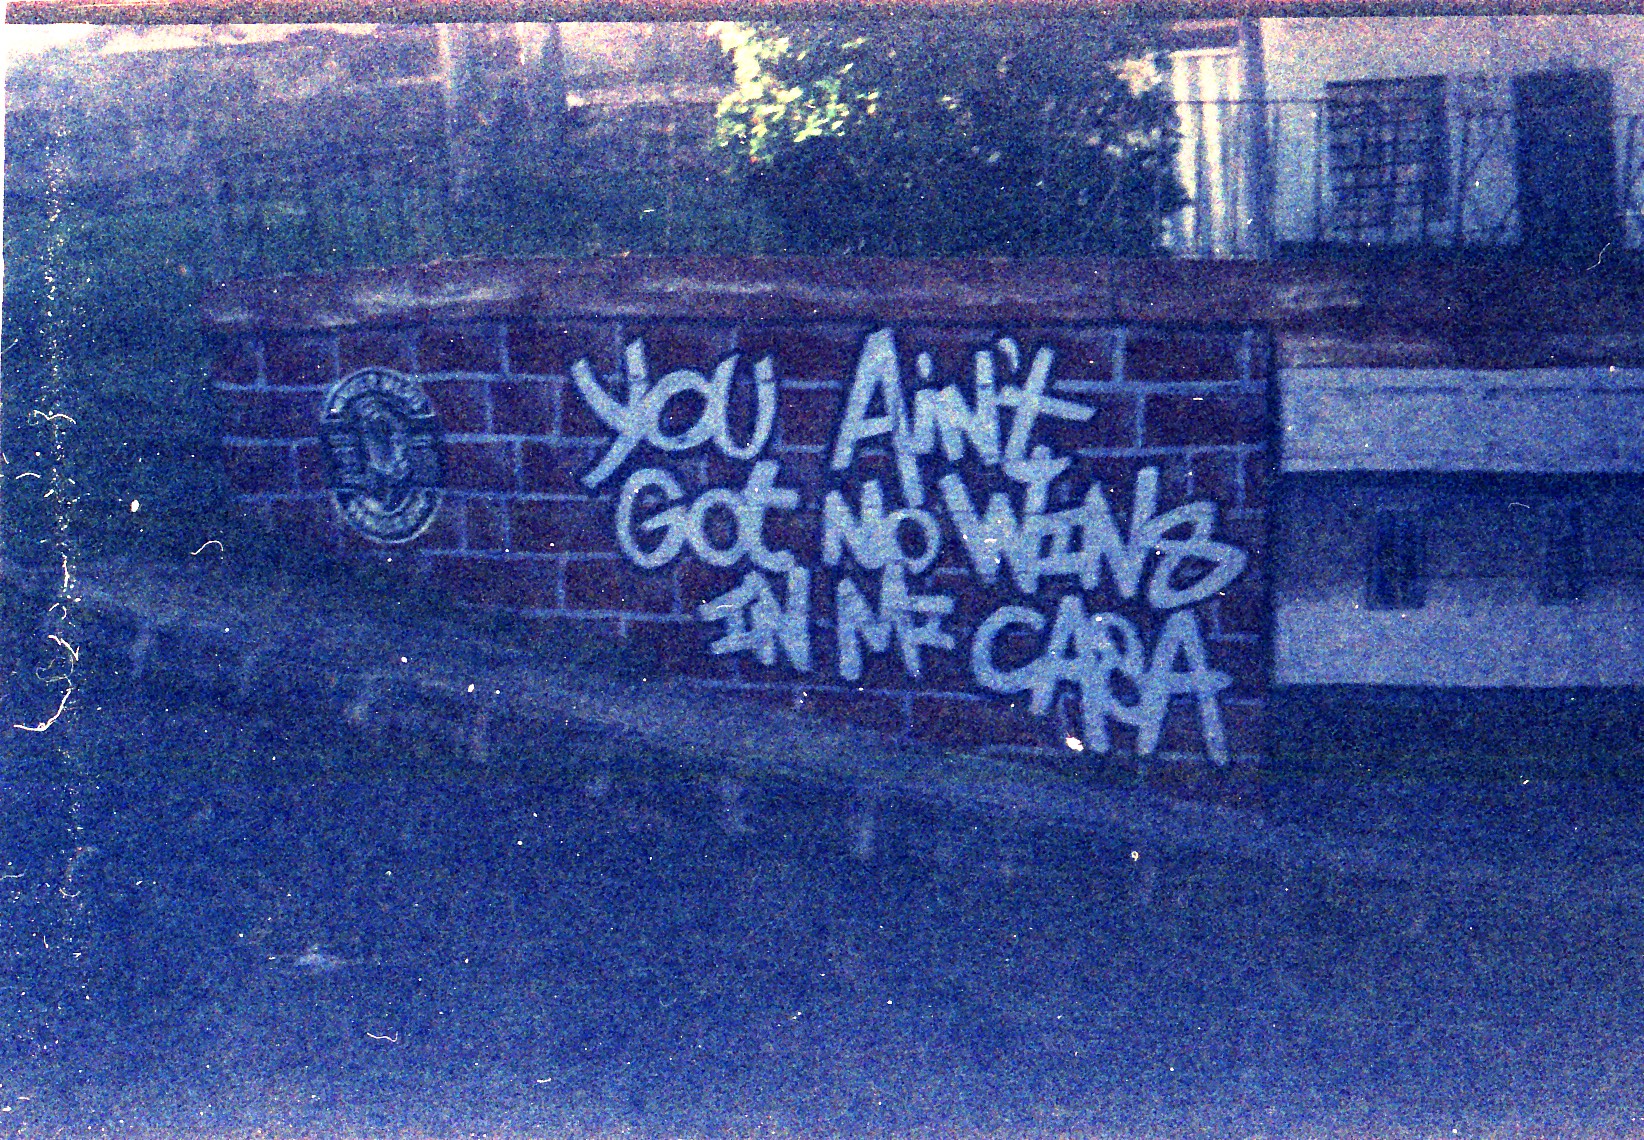 You Ain't
Got No Wins
IN Mi CASA